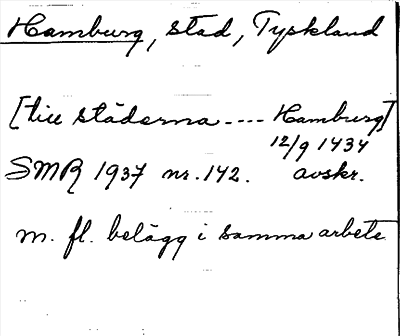 Hamburg, stad, Tyskland
[till städerna ---- Hamburg]
12/9 1434
SMR 1937 nr. 142. avskr.
m. fl. belägg i samma arbete